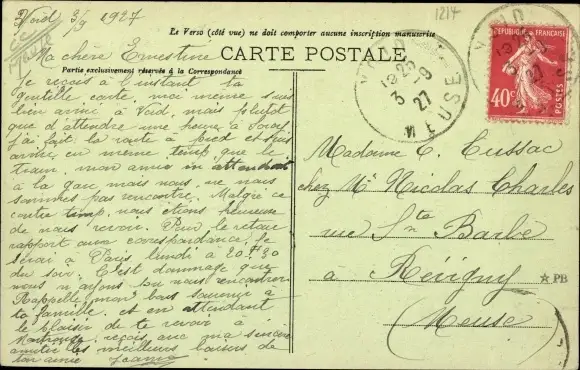 Void, 3/9 1927
1214
Le Verso (côté vue) ne doit comporter aucune inscription manuscrite
CARTE POSTALE
Partie exclusivement réservée à la Correspondance
Ma chère Ernestine
Je reçois à l'instant ta
gentille carte, moi même suis
bien arrivé à Void, mais plutôt
que d'attendre une heure à
j'ai fait la route à pied et suis
arrivé en même temps que le
train, mon amie m'attendait
à la gare mais nous ne nous
sommes pas rencontré. Malgré ce
contre temps, nous étions heureuse
de nous revoir. Pour le retour
rapport aux correspondance, je
serai à Paris lundi à 20 H 30
du soir. C'est dommage que
nous n'ayons pu nous rencontrer.
Rappelle mon bon souvenir à
ta famille, et en attendant
le plaisir de te revoir à
Montrouge, reçois avec ma sincère
amitié les meilleurs baisers de
ton amie
VOID
19 25
3 -9
27
MEUSE
REPUBLIQUE FRANÇAISE
40c
POSTES
Madame E. Cussac
chez Mr Nicolas Charles
rue Ste Barbe
à Révigny
(Meuse)
PB